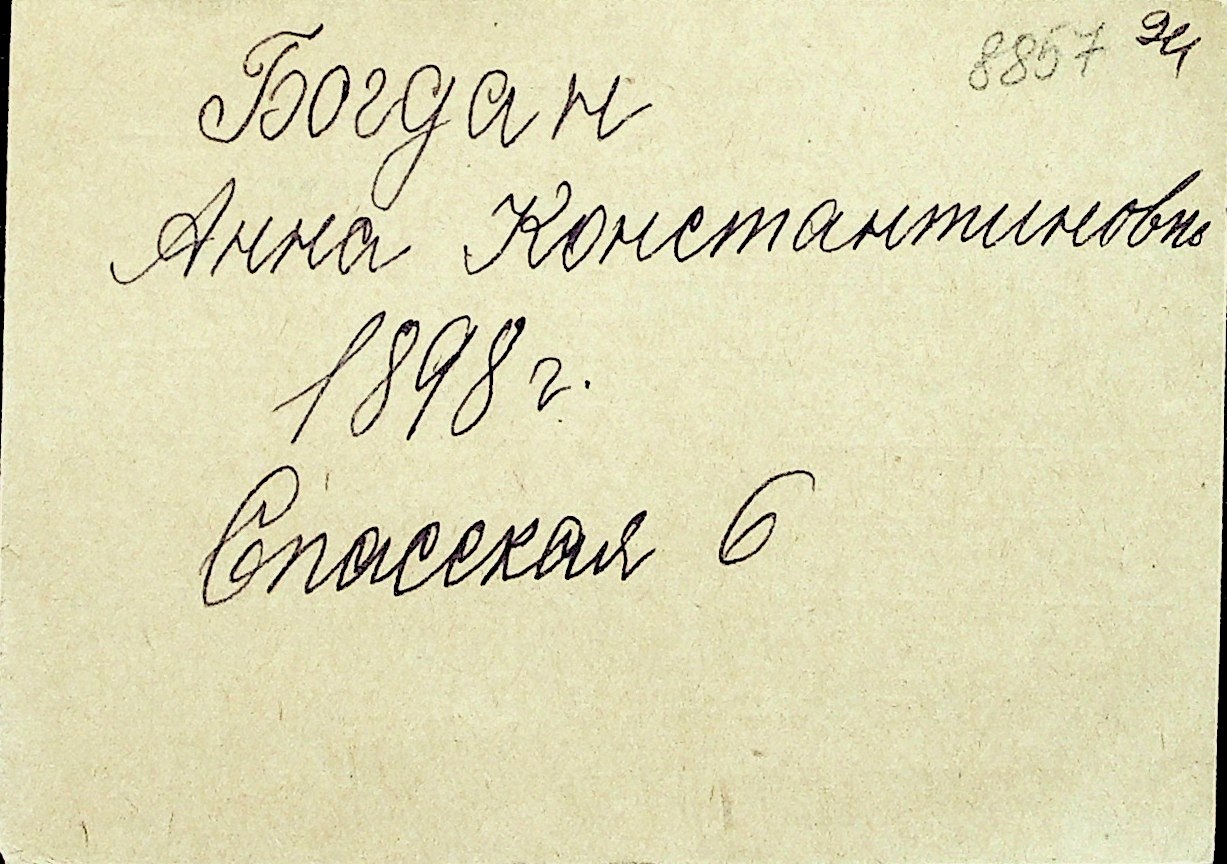 8857 94
Богдан
Анна Константиновна
1898 г.
Спасская 6